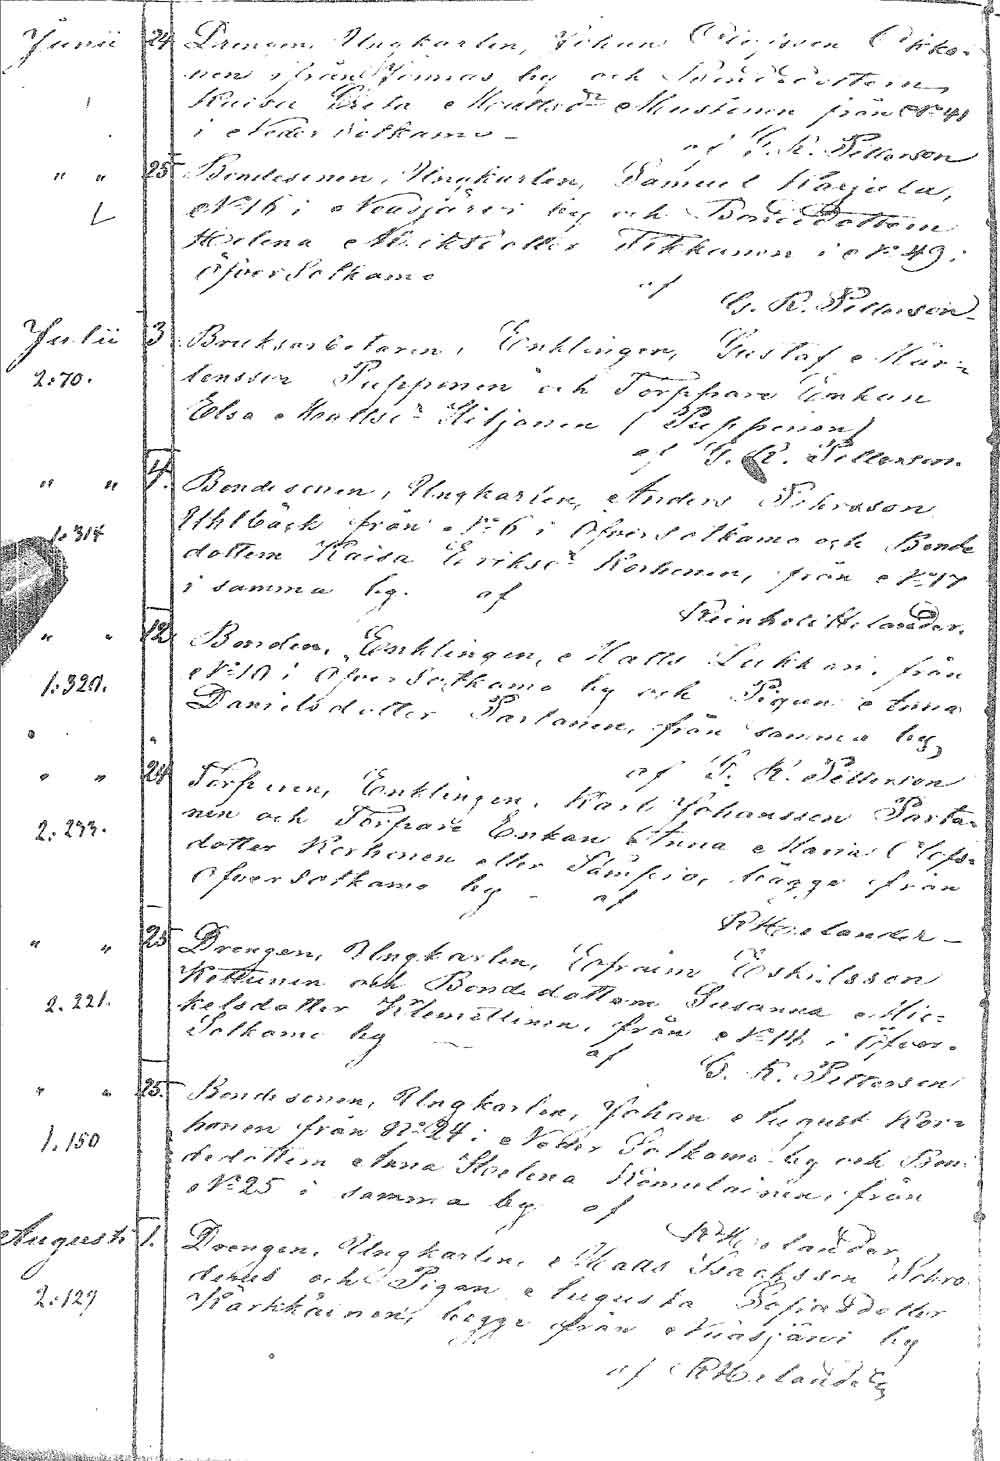 Junii 24 Drengen, Ungkarlen, Johan Okko-
nen ifrån by och Bondedottern
Kaisa Greta Mattsdr Mustonen från No 41
i Neder Sotkamo –
af G. K. Petterson
" " 25 Bondesonen, Ungkarlen, Samuel Karjula,
No 16 i Nuasjärvi by och Bondedottern
Helena Tikkanen i No 49 i
Öfver Sotkamo
af
G. K. Petterson
Julii 3 Bruksarbetaren, Enklingen, Gustaf Mår-
2:70. tensson Pupponen och Torppare Enkan
Elsa Mattsdr Hiljanen (Pupponen)
af G. K. Petterson.
" " 4. Bondesonen, Ungkarlen, Anders
Uhlbäck från No 6 i Öfversotkamo och Bonde
1:314 dottern Kaisa Eriksdr Korhonen, från No 17
i samma by. af
Reinhold Helander.
" " 12 Bonden, Enklingen, Matts Lukkari, från
1:320. No 10 i Öfver Sotkamo by och Pigan Anna
Danielsdotter Partanen, från samma by,
af G. K. Petterson
" " 24 Torparen, Enklingen, Karl Johansson Parta-
2:233. nen och Torpare Enkan Anna Maria Olofs-
dotter Korhonen eller Sämpio, bägge från
Öfversotkamo by – af
R Helander –
" " 25 Drengen, Ungkarlen, Efraim Eskilsson
2.221. Kettunen och Bondedottern Susanna Mic-
kelsdotter Klemettinen, från No 14 i Öfver-
Sotkamo by – af
G. K. Petterson
" " 25. Bondesonen, Ungkarlen, Johan August Kor-
1.150 honen från No 24 i Neder Sotkamo by och Bon-
dedottern Anna Helena Komulainen, från
No 25 i samma by af
R Helander
Augusti 1. Drengen, Ungkarlen, Matts Isacksson Schro
2:129 derus och Pigan Augusta Sofia dotter
Kärkkäinen, begge från Nuasjärvi by
af R Helander